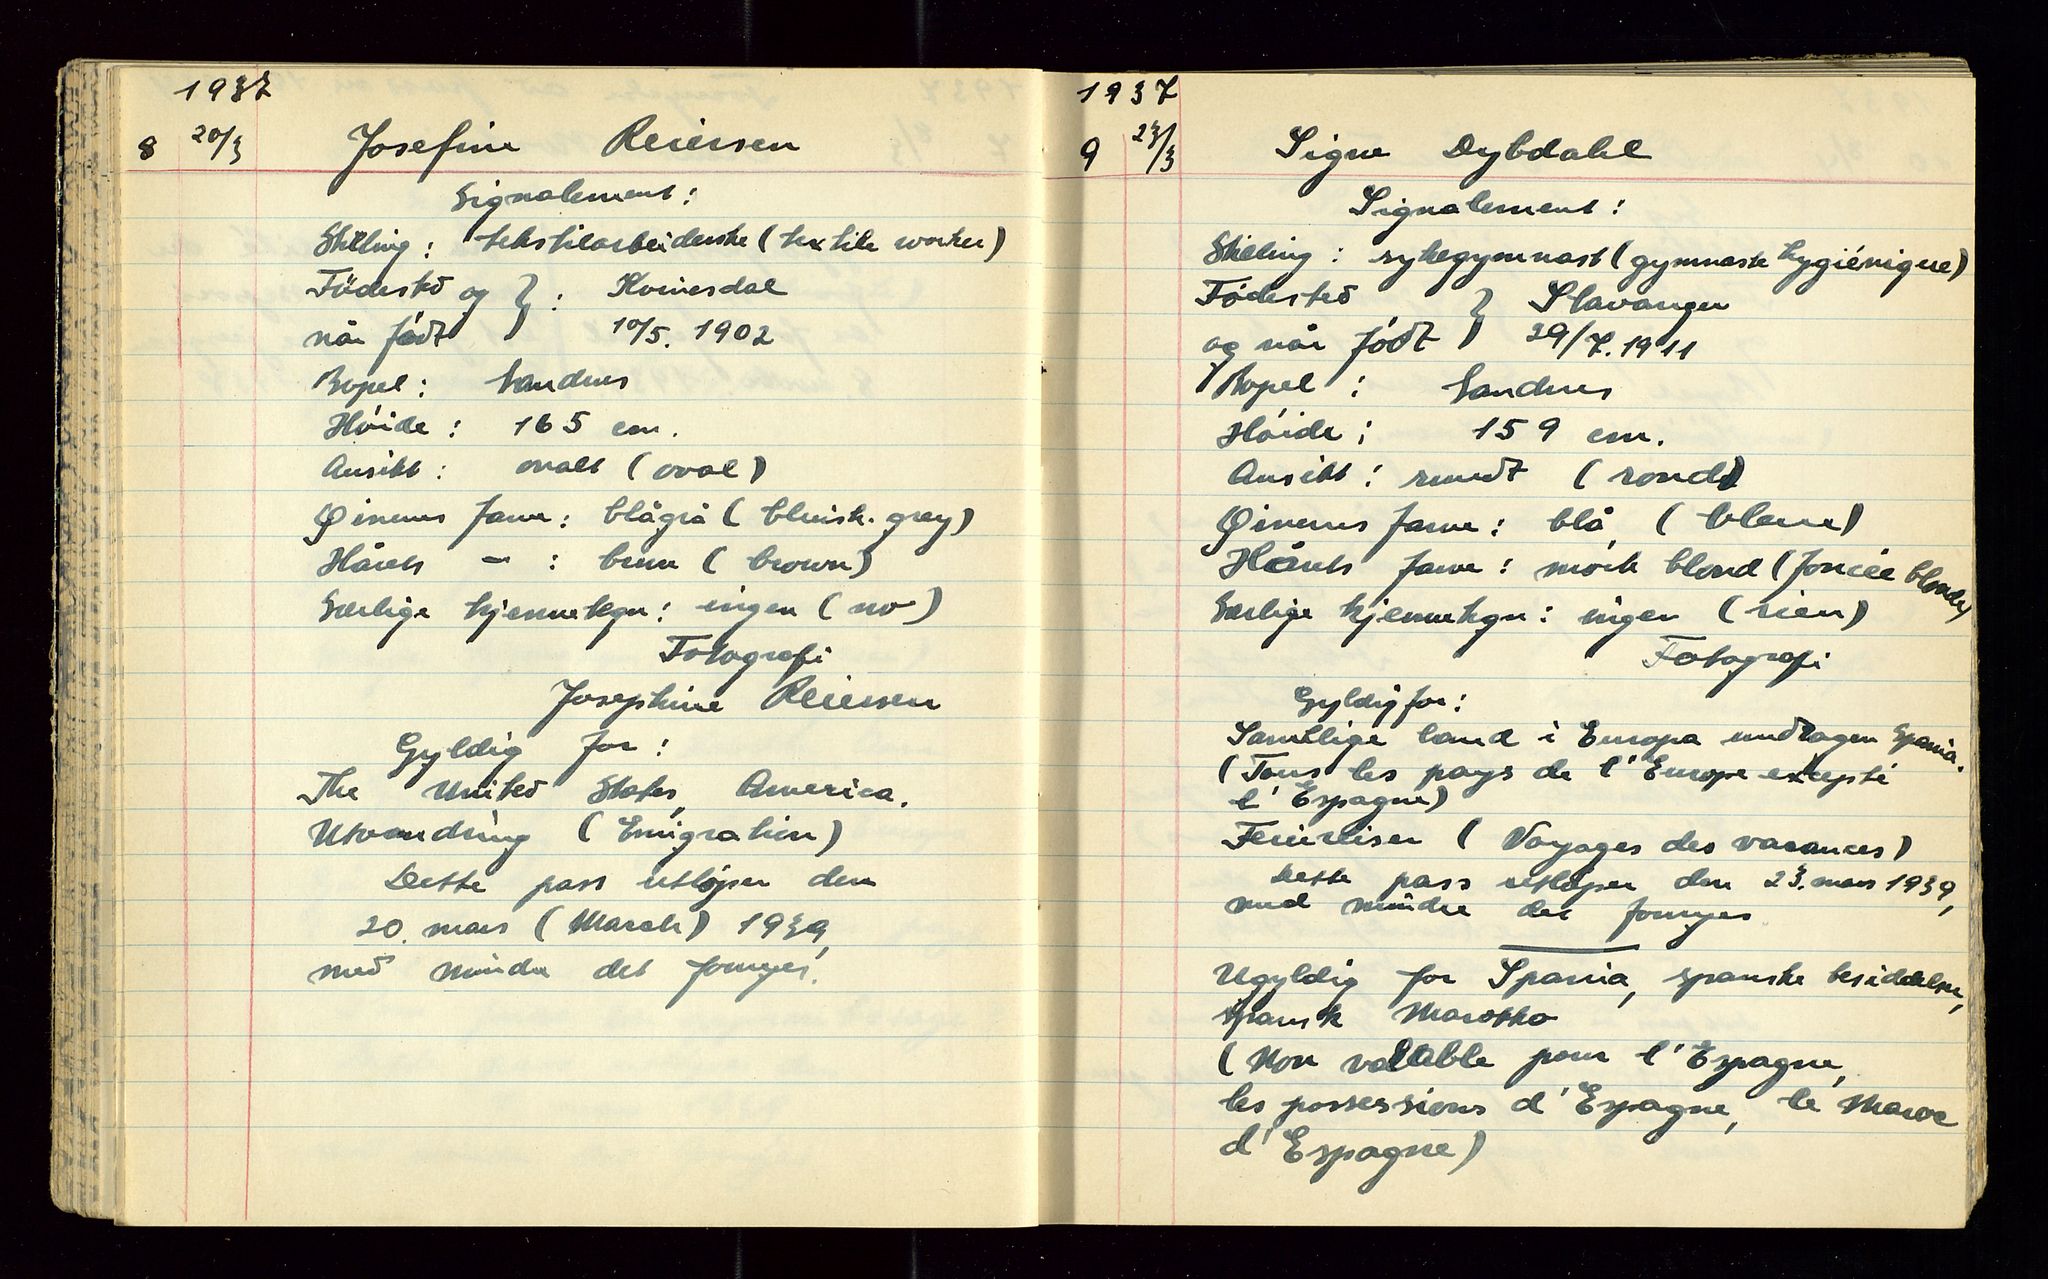 1937
8 20/3 Josefine Reiersen
Signalement:
Stilling: tekstilarbeiderske (textile worker)
Födested og } : Kvinesdal
når född } 10/5. 1902
Bopel: Sandnes
Høide: 165 cm.
Ansikt: ovalt (oval)
Øinenes farve: blågrå (bluish-grey)
Hårets — : brun (brown)
Særlige kjennetegn: ingen (no)
Fotografi
Josephine Reiersen
Gyldig for:
The United States, America.
Utvandring (Emigration)
Dette pass utløper den
20. mars (March) 1939,
med mindre det fornyes.
1937
9 23/3 Signe Dybdahl
Signalement:
Stilling: sykegymnast (gymnaste hygiénique)
Fødested } Stavanger
og når född } 29/7. 1911
Bopel: Sandnes
Høide: 159 cm.
Ansikt: rundt (rond)
Øinenes farve: blå (bleue)
Hårets farve: mørk blond (foncée blonde)
Særlige kjennetegn: ingen (rien)
Fotografi
Gyldig for:
Samtlige land i Europa undtagen Spania.
(Tous les pays de l'Europe excepté
l'Espagne)
Feriereiser (Voyages des vacances)
Dette pass utløper den 23. mars 1939,
med mindre det fornyes
Ugyldig for Spania, spanske besiddelser,
spansk Marokko
(Non valable pour l'Espagne,
les possessions d'Espagne, le Maroc
d'Espagne)